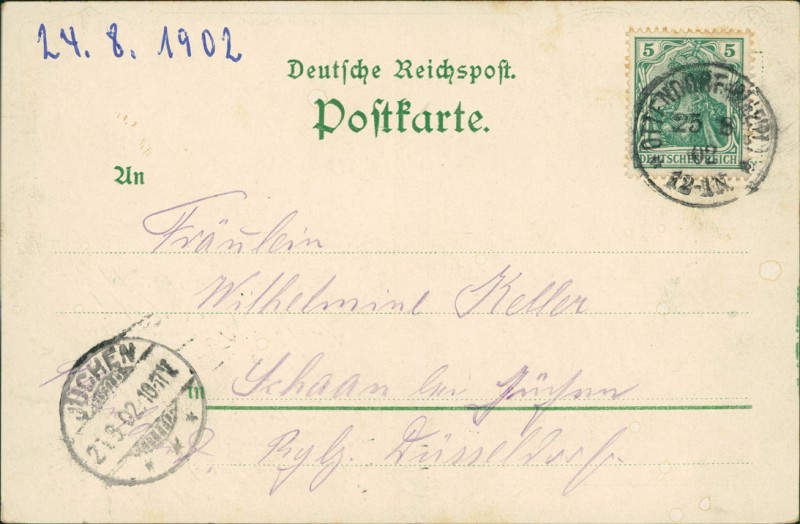 24. 8. 1902
Deutsche Reichspost.
Postkarte.
5 5
DEUTSCHES REICH
25 8
02
12-1N
An
Fräulein
Wilhelmine Keller
in Schaan bei Jüchen
Düsseldorf
JÜCHEN
8.02.10-11V